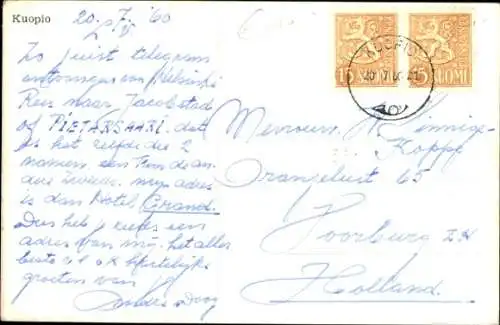 Kuopio
20.7.'60
Zo juist telegram
ontvangen van Helsinki
Reis naar Jacobstad
of PIETARSAARI. dat
is het zelfde die 2
namen. een Finse en an
dere Zweeds. mijn adres
is dan Hotel Grand.
Dus heb je weer een
adres van mij. het aller
beste en ook hartelijke
groeten van
KUOPIO
20.7.60.21
15 SUOMI
15 SUOMI
Mevrouw
Koppe
Oranjelust 65
Voorburg Z.H
Holland.